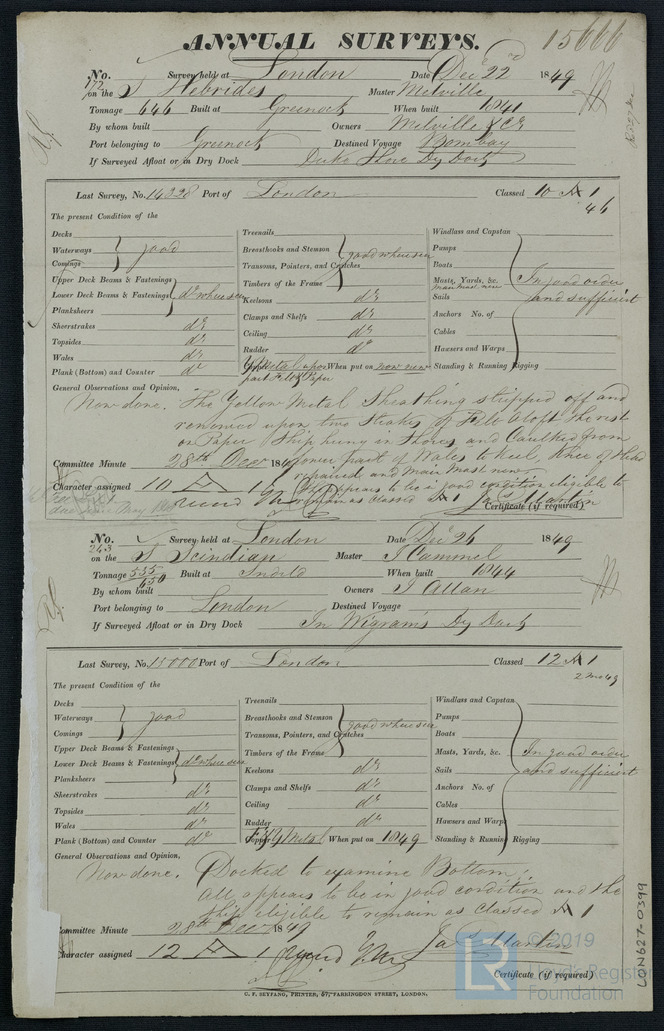 ANNUAL SURVEYS. 15666
No. 172 Survey held at London Date Decr 22nd 1849
on the S Hebrides Master Melville
Tonnage 646 Built at Greenock When built 1841
By whom built Owners Melville & Co
Port belonging to Greenock Destined Voyage Bombay
If Surveyed Afloat or in Dry Dock Duke Shore Dry Dock
Last Survey, No. 14328 Port of London Classed 10 A 1
46
The present Condition of the
Decks
Waterways
Comings
good
Upper Deck Beams & Fastenings
Lower Deck Beams & Fastenings
Planksheers
do where seen
Sheerstrakes do
Topsides do
Wales do
Plank (Bottom) and Counter do
Treenails
Breasthooks and Stemson
Transoms, Pointers, and Crutches
Timbers of the Frame
good where seen
Keelsons do
Clamps and Shelfs do
Ceiling do
Rudder do
Y Metal upon When put on now new
part Felt & Paper
Windlass and Capstan
Pumps
Boats
Masts, Yards, &c.
Main mast new
Sails
Anchors No. of
Cables
Hawsers and Warps
Standing & Running Rigging
In good order
and sufficient
General Observations and Opinion,
Now done. The Yellow Metal Sheathing stripped off and
renewed upon two Strakes of Felt aloft the rest
on Paper Ship hung in Shores and Caulked from
lower part of Wales to Keel, Knee of Head
repaired and Main Mast new
She appears to be in good condition eligible to
remain as Classed A 1 Jas Martin
Committee Minute 28th Decr 1849
Character assigned 10 A 1
Certificate (if required)
No. 243 Survey held at London Date Decr 26 1849
on the S Scindian Master J Cammel
Tonnage 555
650 Built at Sndld When built 1844
By whom built Owners J Allan
Port belonging to London Destined Voyage
If Surveyed Afloat or in Dry Dock In Wigram's Dry Dock
Last Survey, No. 15000 Port of London Classed 12 A 1
2 Mo 49
The present Condition of the
Decks
Waterways
Comings
good
Upper Deck Beams & Fastenings
Lower Deck Beams & Fastenings
Planksheers
do where seen
Sheerstrakes do
Topsides do
Wales do
Plank (Bottom) and Counter do
Treenails
Breasthooks and Stemson
Transoms, Pointers, and Crutches
Timbers of the Frame
good where seen
Keelsons do
Clamps and Shelfs do
Ceiling do
Rudder do
F & Y Metal When put on 1849
Windlass and Capstan
Pumps
Boats
Masts, Yards, &c.
Sails
Anchors No. of
Cables
Hawsers and Warps
Standing & Running Rigging
In good order
and sufficient
General Observations and Opinion,
Now done. Docked to examine Bottom;
all appears to be in good condition and the
Ship eligible to remain as Classed A 1
Committee Minute 28th Decr 1849
Jas Martin
Character assigned 12 A 1
Certificate (if required)
C. F. SEYFANG, PRINTER, 57, FARRINGDON STREET, LONDON.
LON627-0399
©2019
LR
Lloyd's Register
Foundation